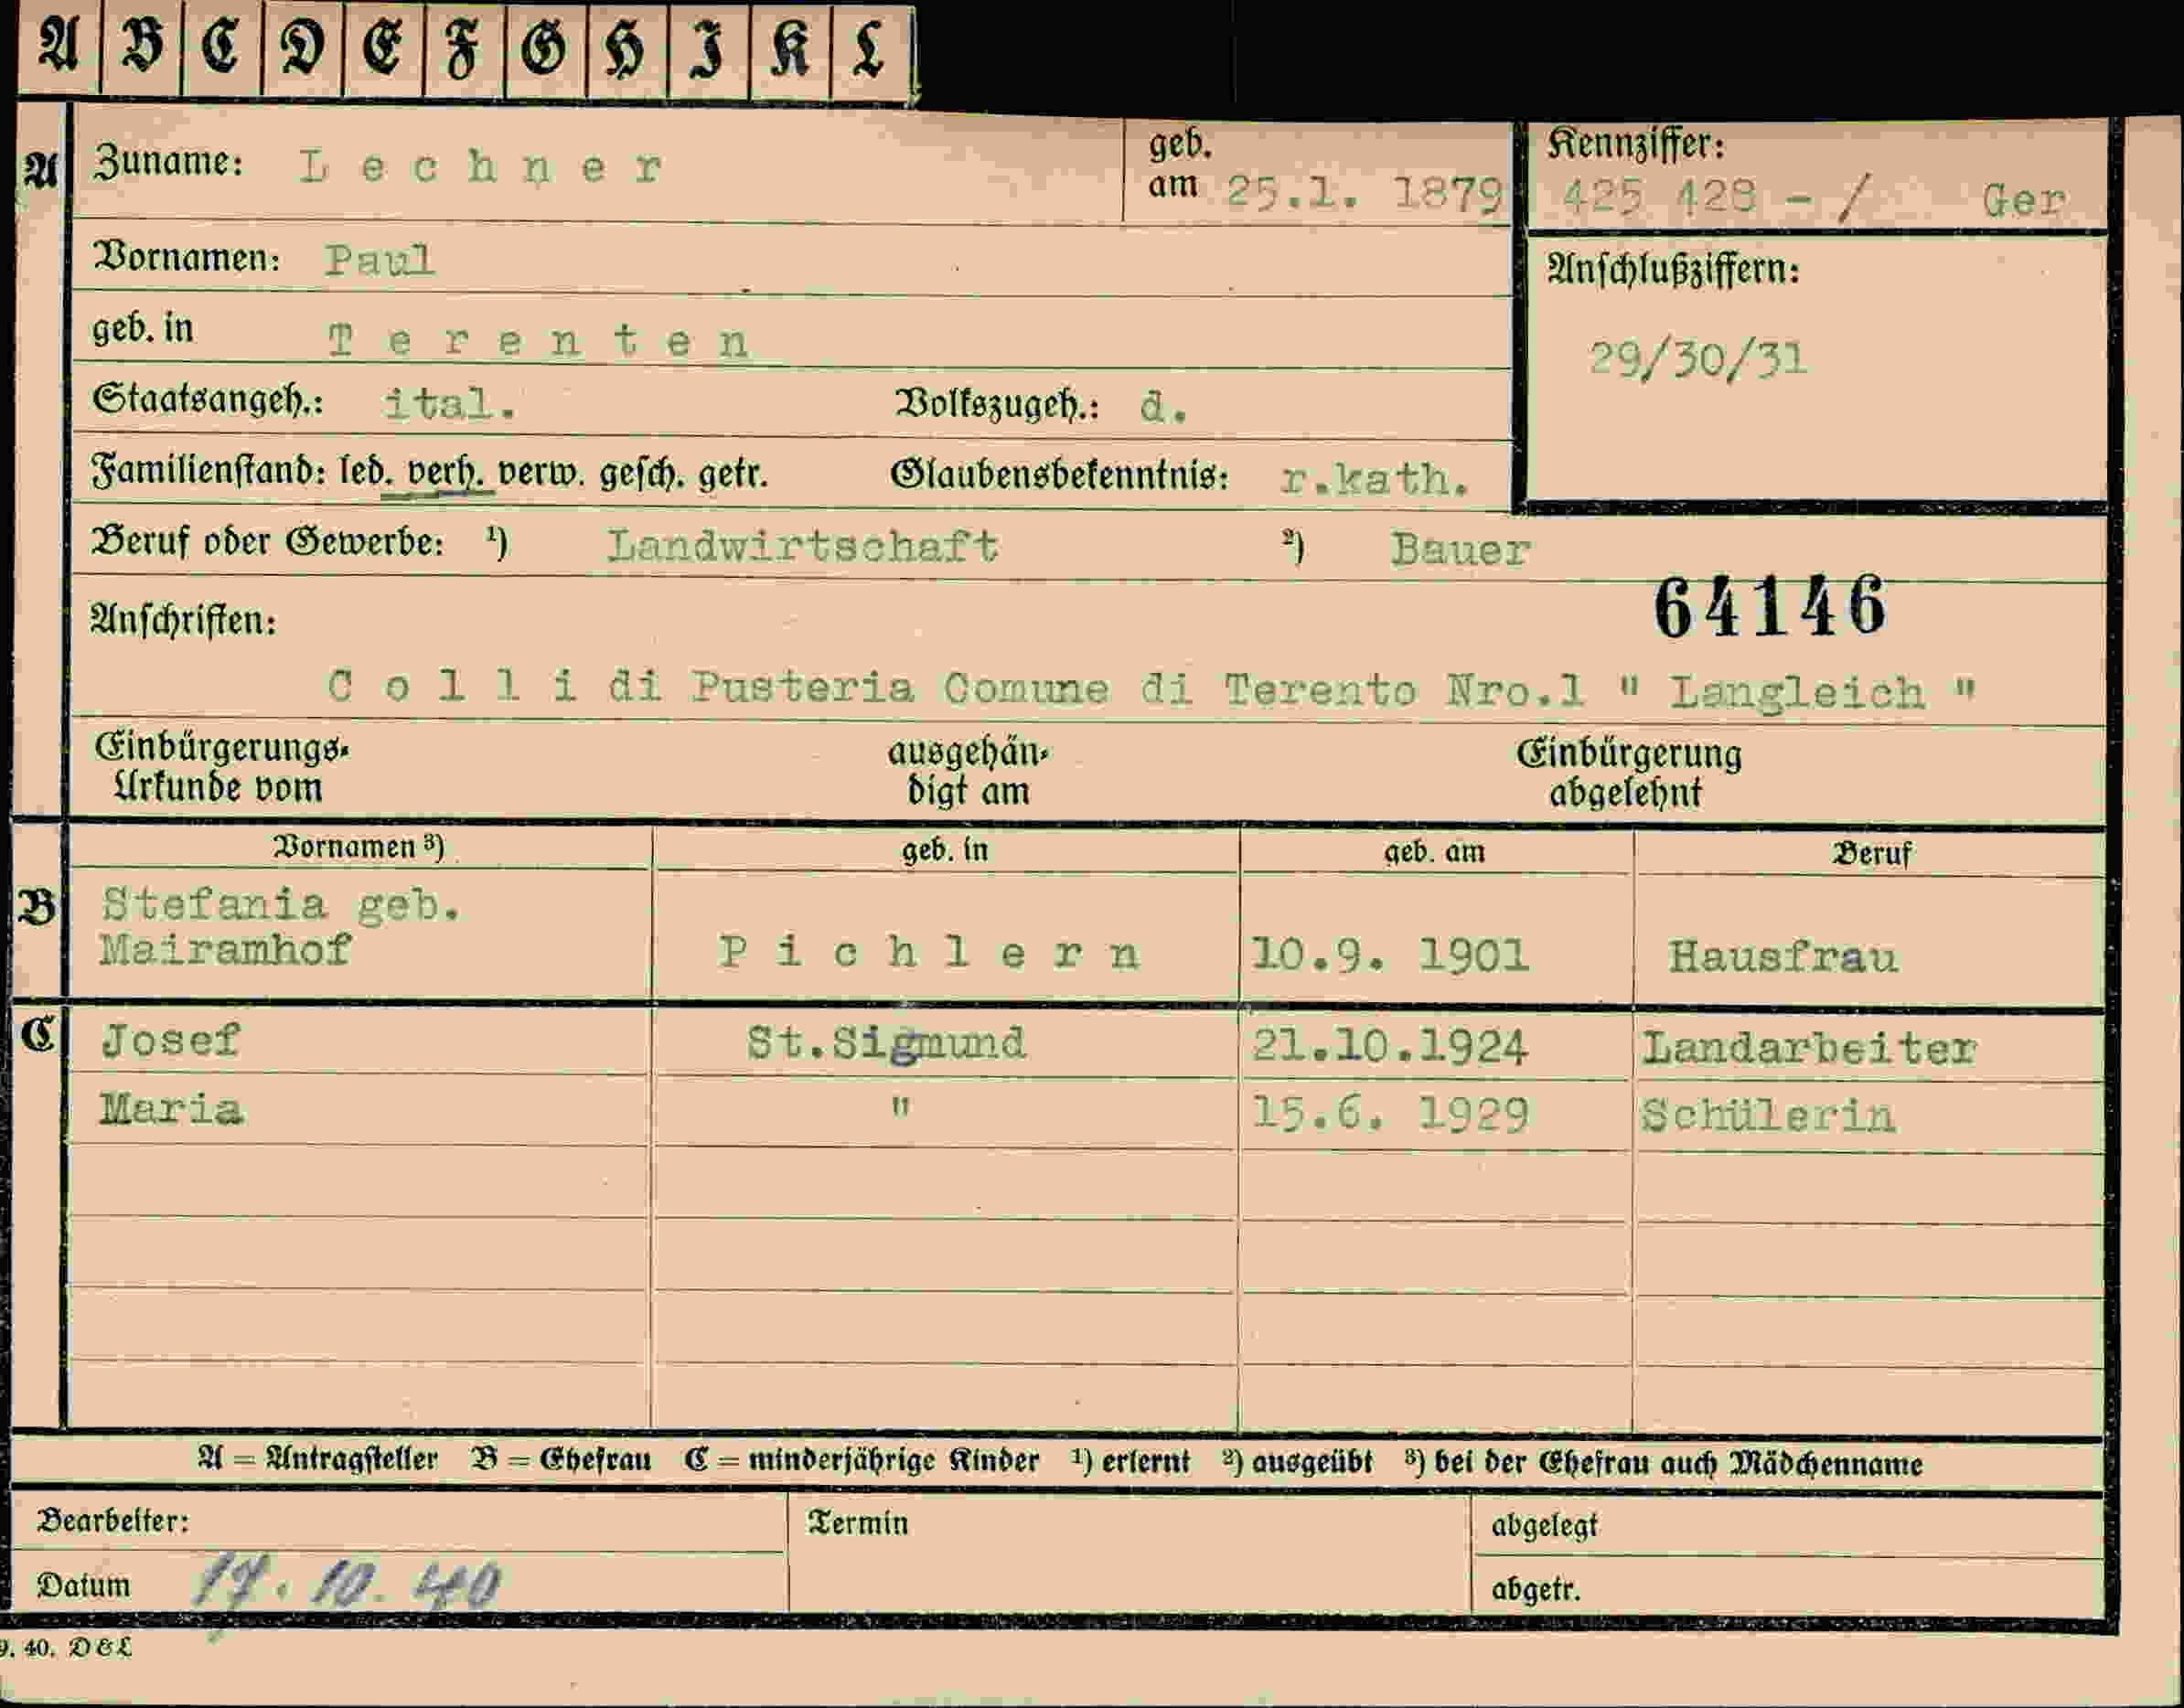 A B C D E F G H I K L
A Zuname: Lechner geb. am 25.1. 1879 Kennziffer: 425 428 - / Ger
Vornamen: Paul
Anschlußziffern:
geb. in Terenten
29/30/31
Staatsangeh.: ital. Volkszugeh.: d.
Familienstand: led. verh. verw. gesch. getr. Glaubensbekenntnis: r.kath.
Beruf oder Gewerbe: ¹) Landwirtschaft ²) Bauer
64146
Anschriften:
Colli di Pusteria Comune di Terento Nro.1 " Langleich "
Einbürgerungs-Urkunde vom ausgehändigt am Einbürgerung abgelehnt
Vornamen ³) geb. in geb. am Beruf
B Stefania geb.
Mairamhof Pichlern 10.9. 1901 Hausfrau
C Josef St.Sigmund 21.10.1924 Landarbeiter
Maria " 15.6. 1929 Schülerin
A = Antragsteller B = Ehefrau C = minderjährige Kinder ¹) erlernt ²) ausgeübt ³) bei der Ehefrau auch Mädchenname
Bearbeiter: Termin abgelegt
Datum 17.10.40 abgetr.
9. 40. D&L